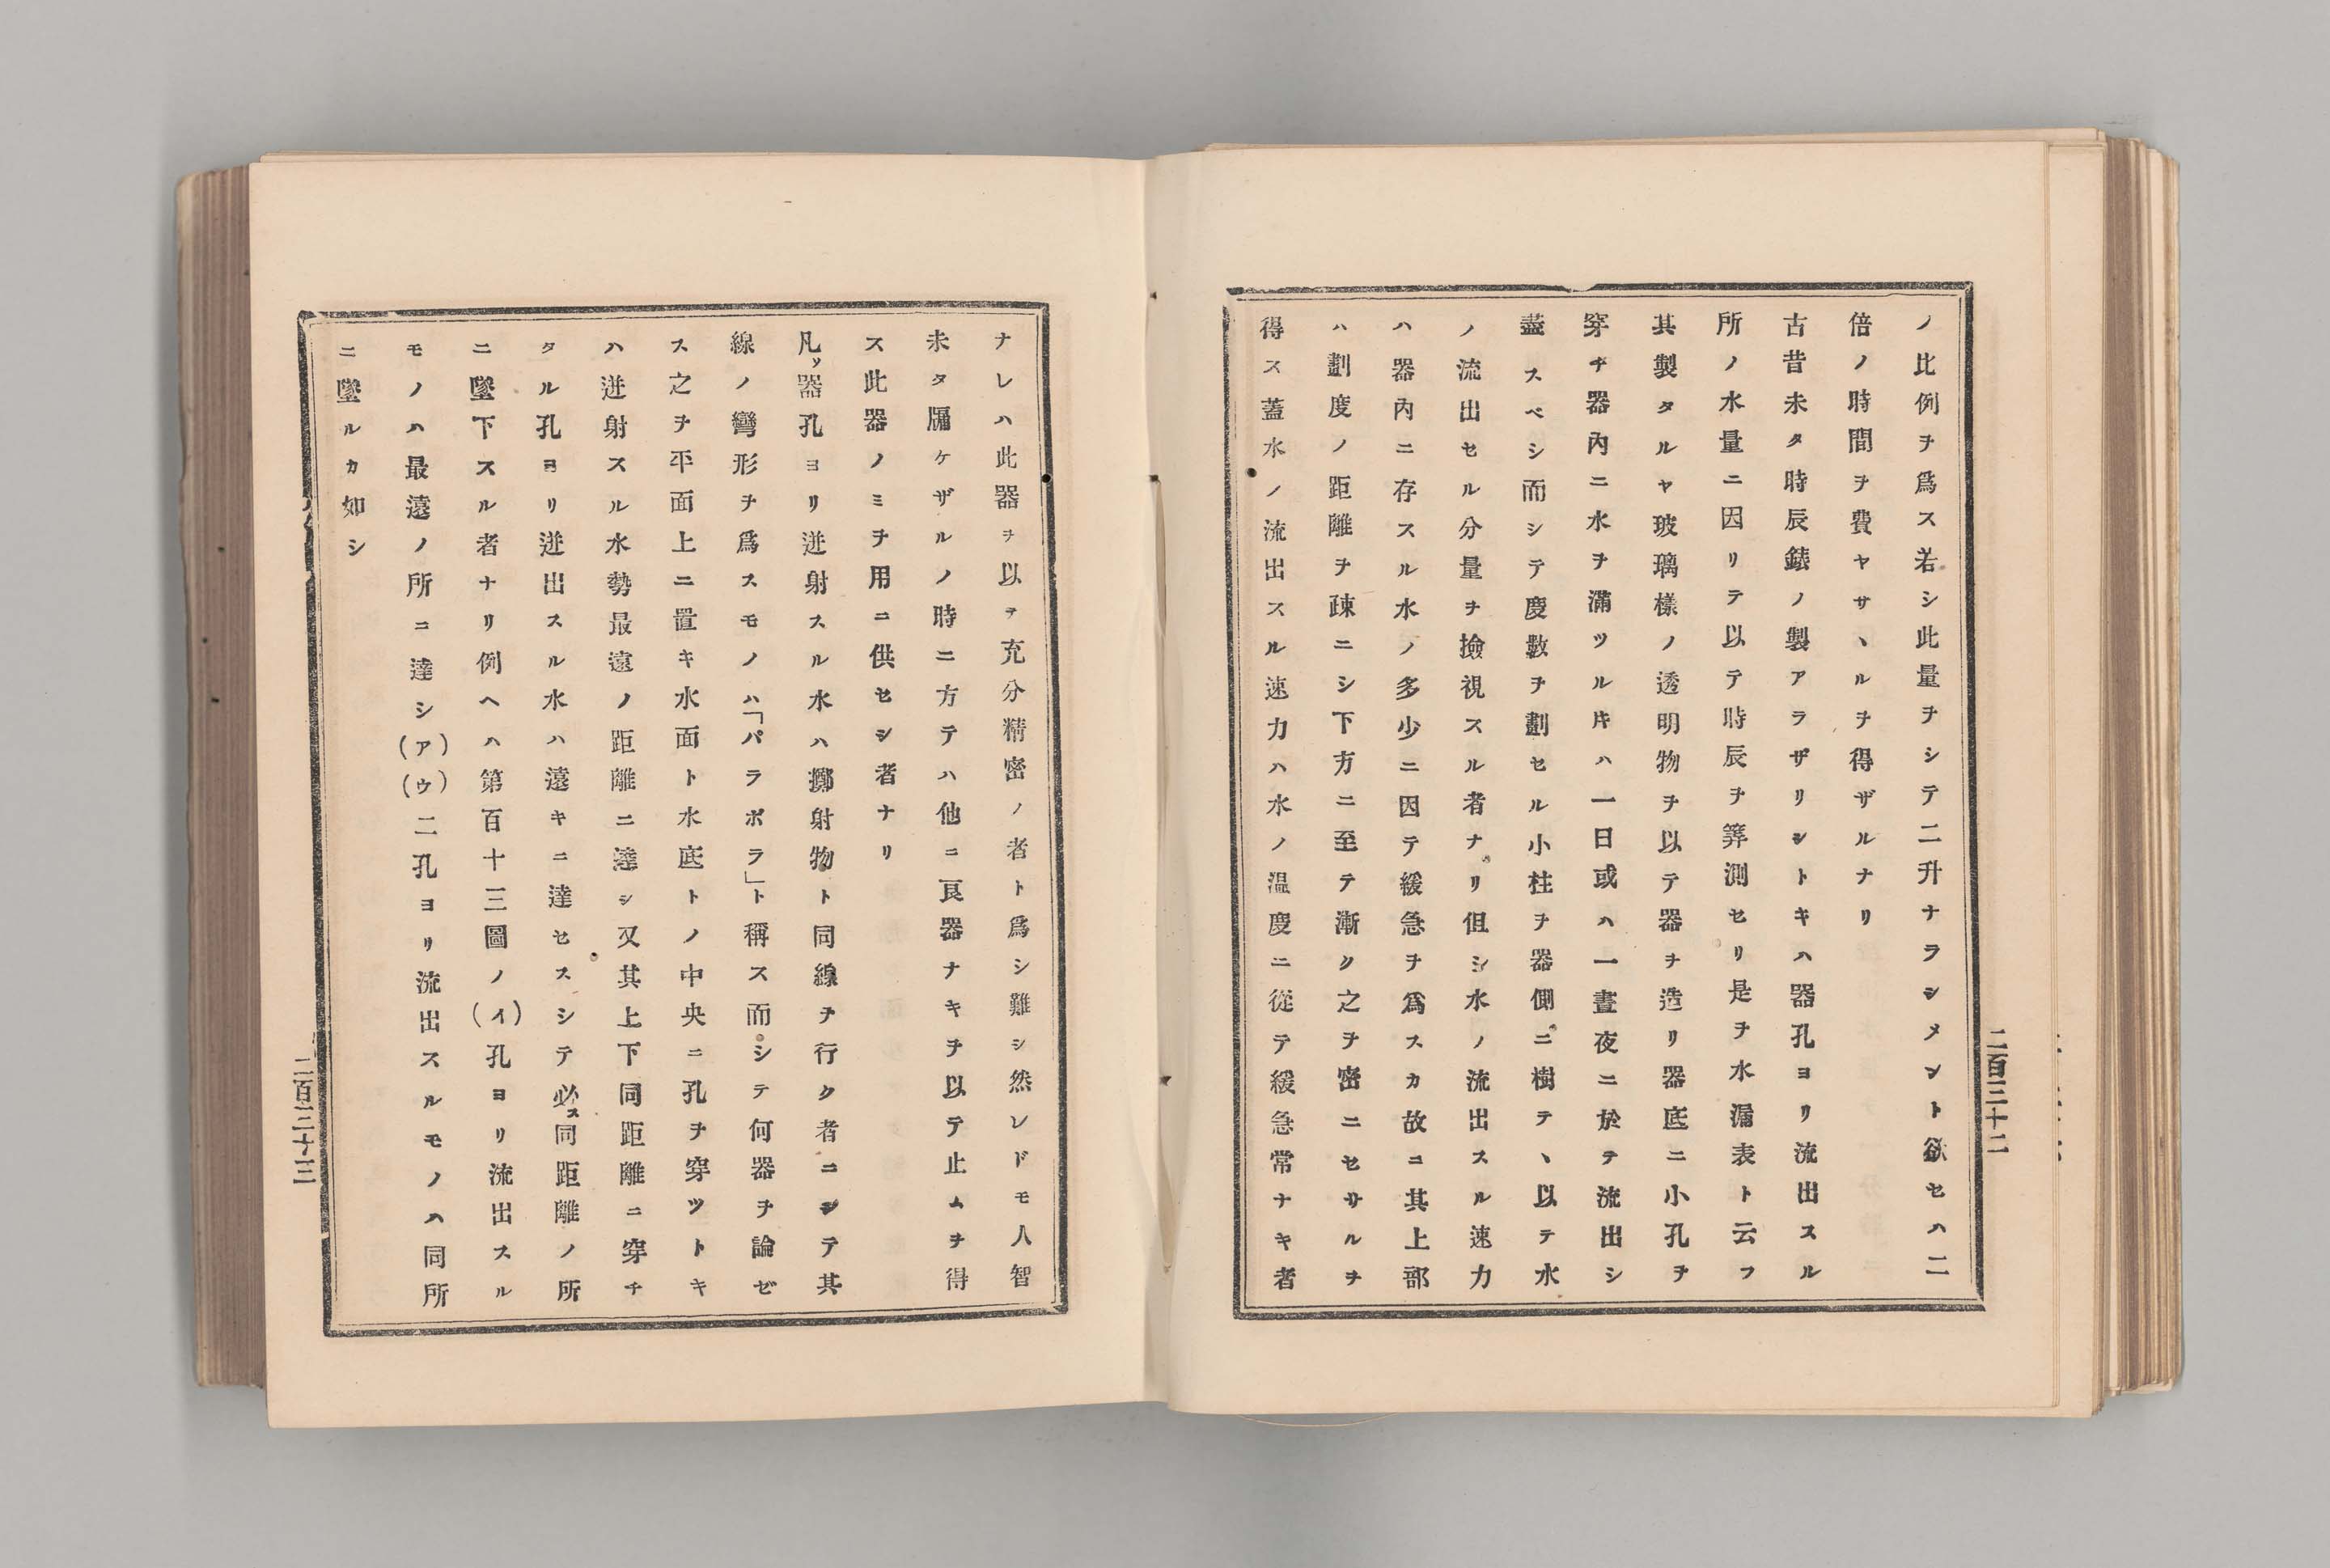 ノ比例ヲ爲ス若シ此量ヲシテ二升ナラシメント欲セハ二
倍ノ時間ヲ費ヤサヽルヲ得ザルナリ
古昔未タ時辰錶ノ製アラザリシトキハ器孔ヨリ流出スル
所ノ水量ニ因リテ以テ時辰ヲ筭測セリ是ヲ水漏表ト云フ
其製タルヤ玻璃樣ノ透明物ヲ以テ器ヲ造リ器底ニ小孔ヲ
穿チ器內ニ水ヲ滿ツル𪜈ハ一日或ハ一晝夜ニ於テ流出シ
盡スベシ而シテ度數ヲ劃セル小柱ヲ器側ニ樹テヽ以テ水
ノ流出セル分量ヲ撿視スル者ナリ但シ水ノ流出スル速力
ハ器內ニ存スル水ノ多少ニ因テ緩急ヲ爲スカ故ニ其上部
ハ劃度ノ距離ヲ疎ニシ下方ニ至テ漸ク之ヲ密ニセサルヲ
得ス蓋水ノ流出スル速力ハ水ノ溫度ニ從テ緩急常ナキ者
二百三十二
ナレハ此器ヲ以テ充分精密ノ者ト爲シ難シ然レドモ人智
未タ牖ケザルノ時ニ方テハ他ニ良器ナキヲ以テ止ムヲ得
ス此器ノミヲ用ニ供セシ者ナリ
凡ソ器孔ヨリ迸射スル水ハ擲射物ト同線ヲ行ク者ニシテ其
線ノ彎形ヲ爲スモノハ「パラボラ」ト稱ス而シテ何器ヲ論ゼ
ス之ヲ平面上ニ置キ水面ト水底トノ中央ニ孔ヲ穿ツトキ
ハ迸射スル水勢最遠ノ距離ニ達シ又其上下同距離ニ穿チ
タル孔ヨリ迸出スル水ハ遠キニ達セスシテ必ス同距離ノ所
ニ墜下スル者ナリ例ヘハ第百十三圖ノ(イ)孔ヨリ流出スル
モノハ最遠ノ所ニ達シ(ア)(ウ)二孔ヨリ流出スルモノハ同所
ニ墜ルカ如シ
二百三十三